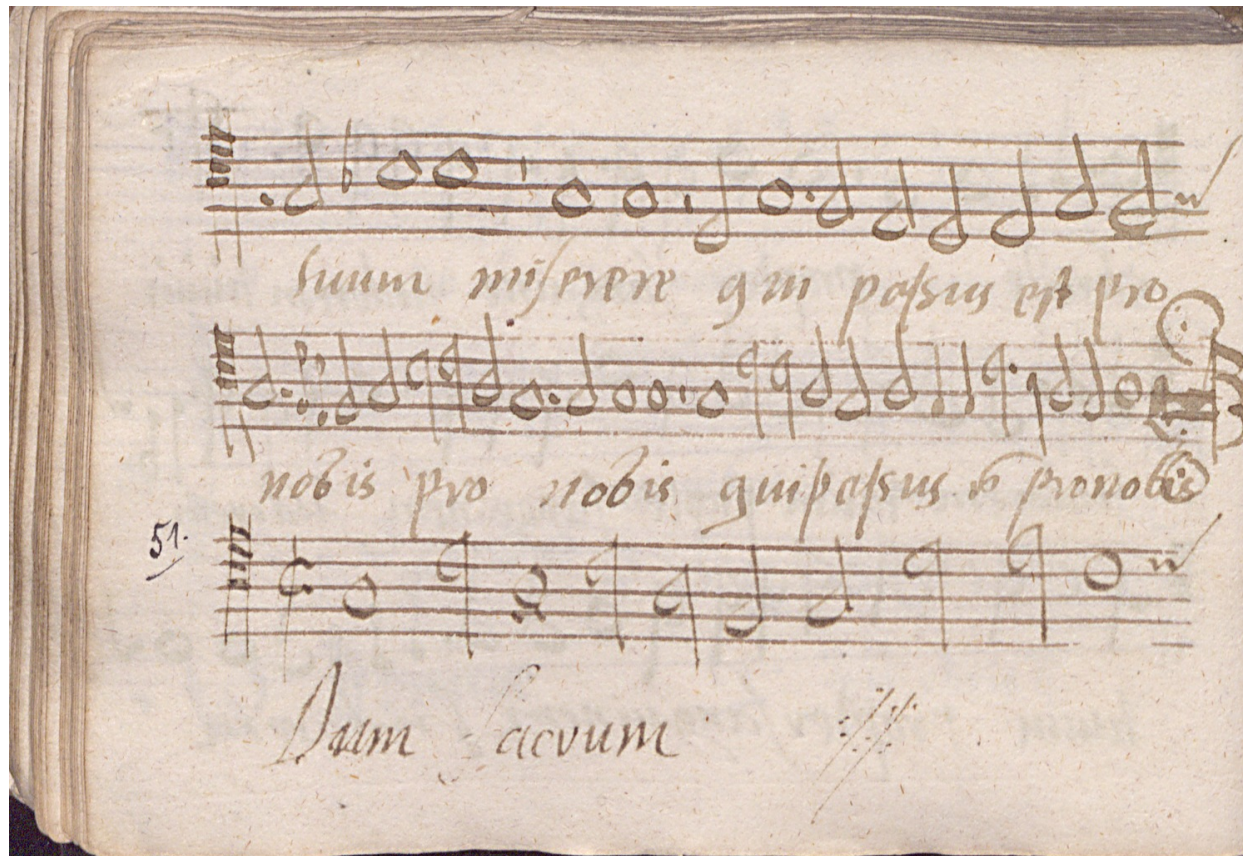 suum miserere qui passus est pro
nobis pro nobis qui passus pro nobis
51.
Dum sacrum